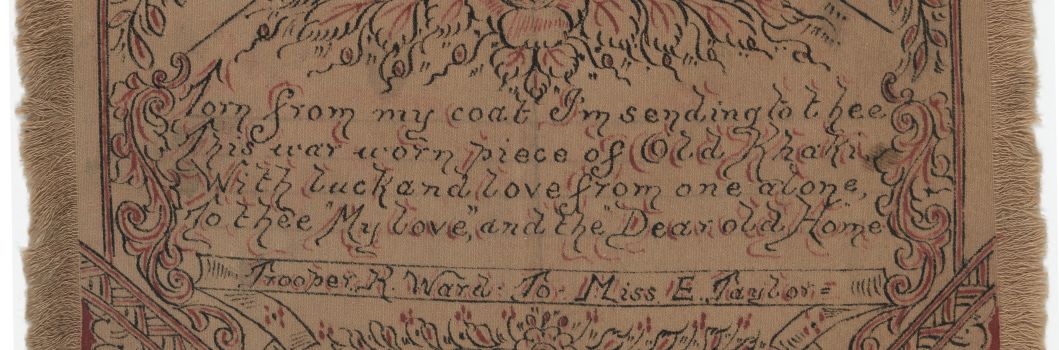 Torn from my coat I'm sending to thee
This war worn piece of Old Khaki,
With luck and love from one alone,
To thee "My love", and the "Dear old Home"
Trooper R. Ward. To Miss E. Taylor =